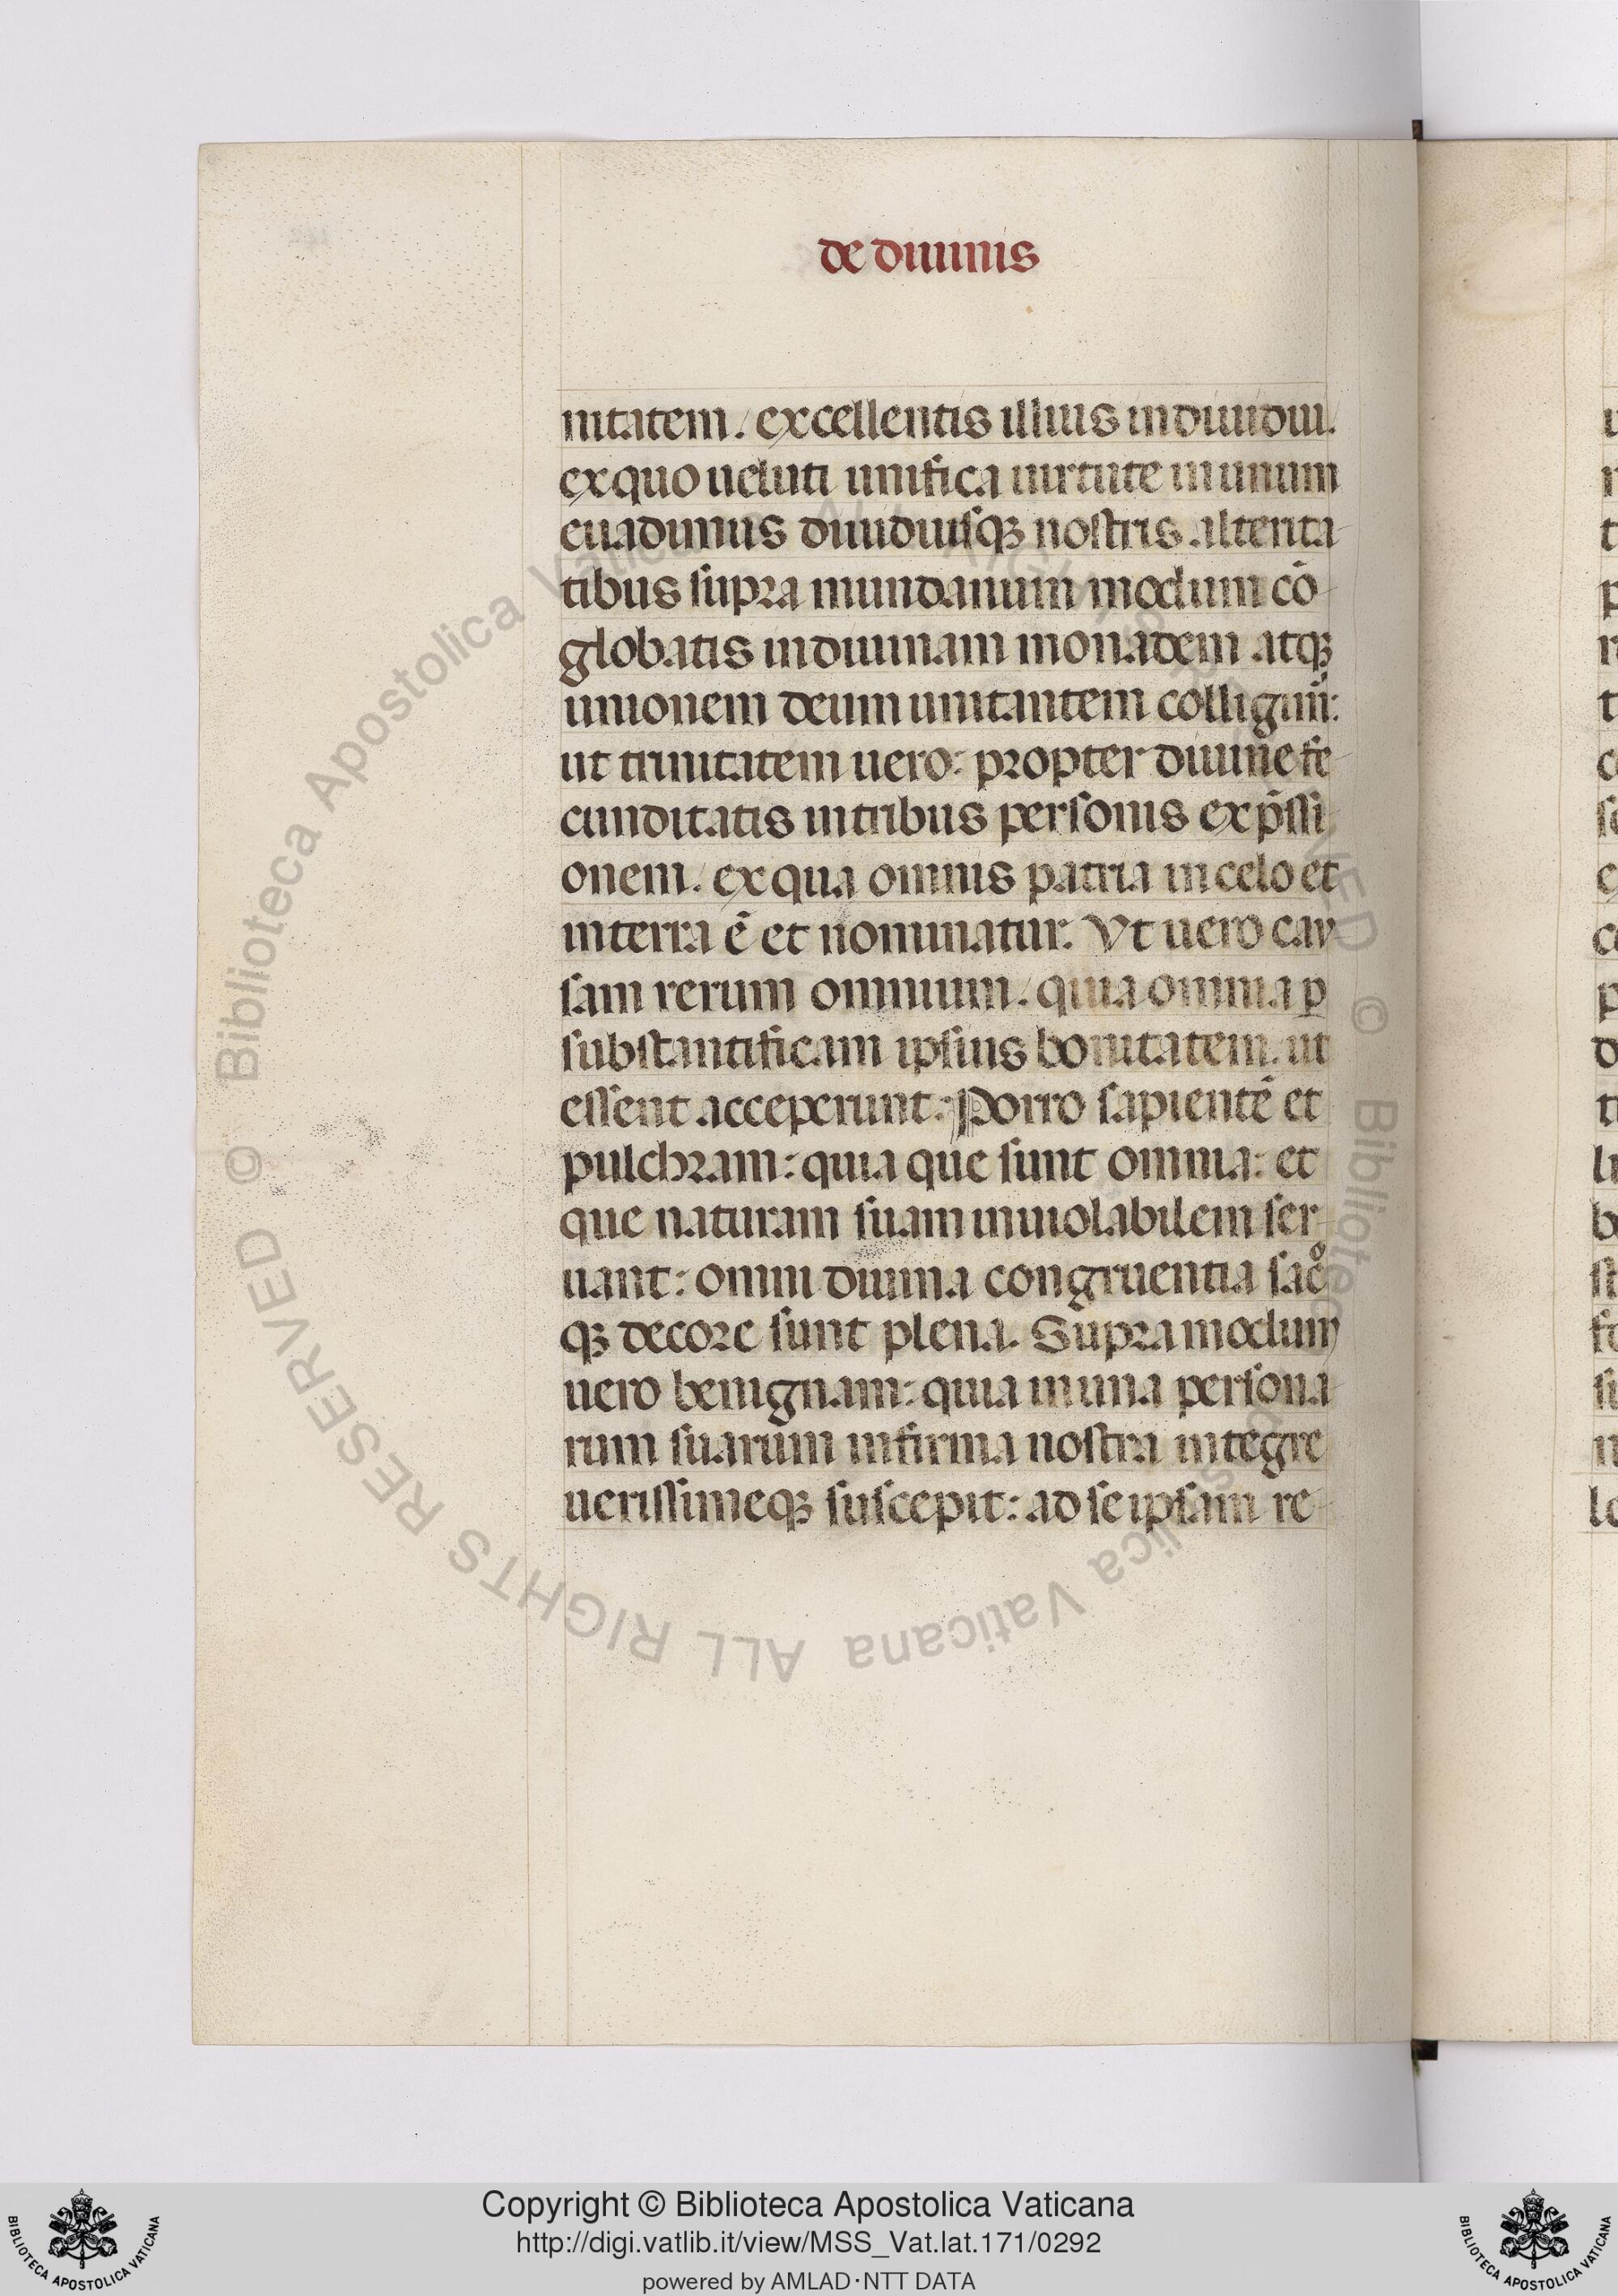 de diuinis
nitatem. excellentis illius indiuidui.
ex quo ueluti unifica uirtute in unum
euadimus diuiduisqꝫ nostris alterita
tibus supra mundanum modum cō
globatis in diuinam monadem atqꝫ
unionem deum imitantem colligim̄:
ut trinitatem uero: propter diuine fe
cunditatis in tribus personis exp̄ssi
onem. ex qua omnis patria in celo et
in terra ē et nominatur. Vt uero cau
sam rerum omnium. quia omnia ꝑ
substantificam ipsius bonitatem. ut
essent acceperunt: Porro sapientē et
pulchram: quia que sunt omnia: et
que naturam suam inuiolabilem ser
uant: omni diuina congruentia sacͦ
qꝫ decore sunt plena. Supra modum
uero benignam: quia in una persona
rum suarum infirma nostra integre
uerissimeqꝫ suscepit: ad se ipsam re
© Biblioteca Apostolica Vaticana ALL RIGHTS RESERVED © Biblioteca Apostolica Vaticana ALL RIGHTS RESERVED
Copyright © Biblioteca Apostolica Vaticana
http://digi.vatlib.it/view/MSS_Vat.lat.171/0292
powered by AMLAD·NTT DATA
BIBLIOTECA APOSTOLICA VATICANA
BIBLIOTECA APOSTOLICA VATICANA